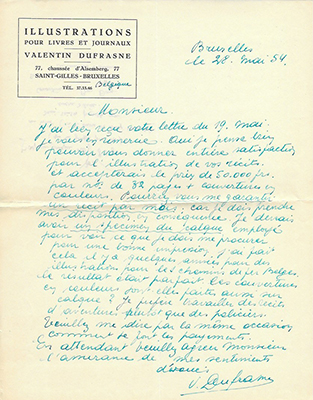 ILLUSTRATIONS
POUR LIVRES ET JOURNAUX
VALENTIN DUFRASNE
77, chaussée d'Alsemberg, 77
SAINT-GILLES - BRUXELLES
TÉL. 37.13.60 Belgique
Bruxelles
le 28 mai 54.
Monsieur
J'ai bien reçu votre lettre du 19 mai
je vous en remercie. Oui je pense bien
pouvoir vous donner entière satisfaction
pour l'illustration de vos récits.
et accepterais le prix de 50.000 frs.
par no. de 32 pages + couvertures en
couleurs. Pourriez vous me garantir
un récit par mois. car je dois prendre
mes dispositions en conséquence. Je devrais
avoir un spécimen du calque employé
pour voir ce que je dois me procurer
pour une bonne impression, j'ai fait
cela il y a quelques années pour des
illustrations pour les chemins de fer Belges.
le résultat était parfait. Les couvertures
en couleurs sont-elles faites aussi sur
calque? Je préfère travailler des récits
d'aventures plutôt que des policiers.
Veuillez me dire par la même occasion
comment se font les payements.
En attendant veuillez agréer Monsieur
l'assurance de mes sentiments
dévoués
V. Dufrasne